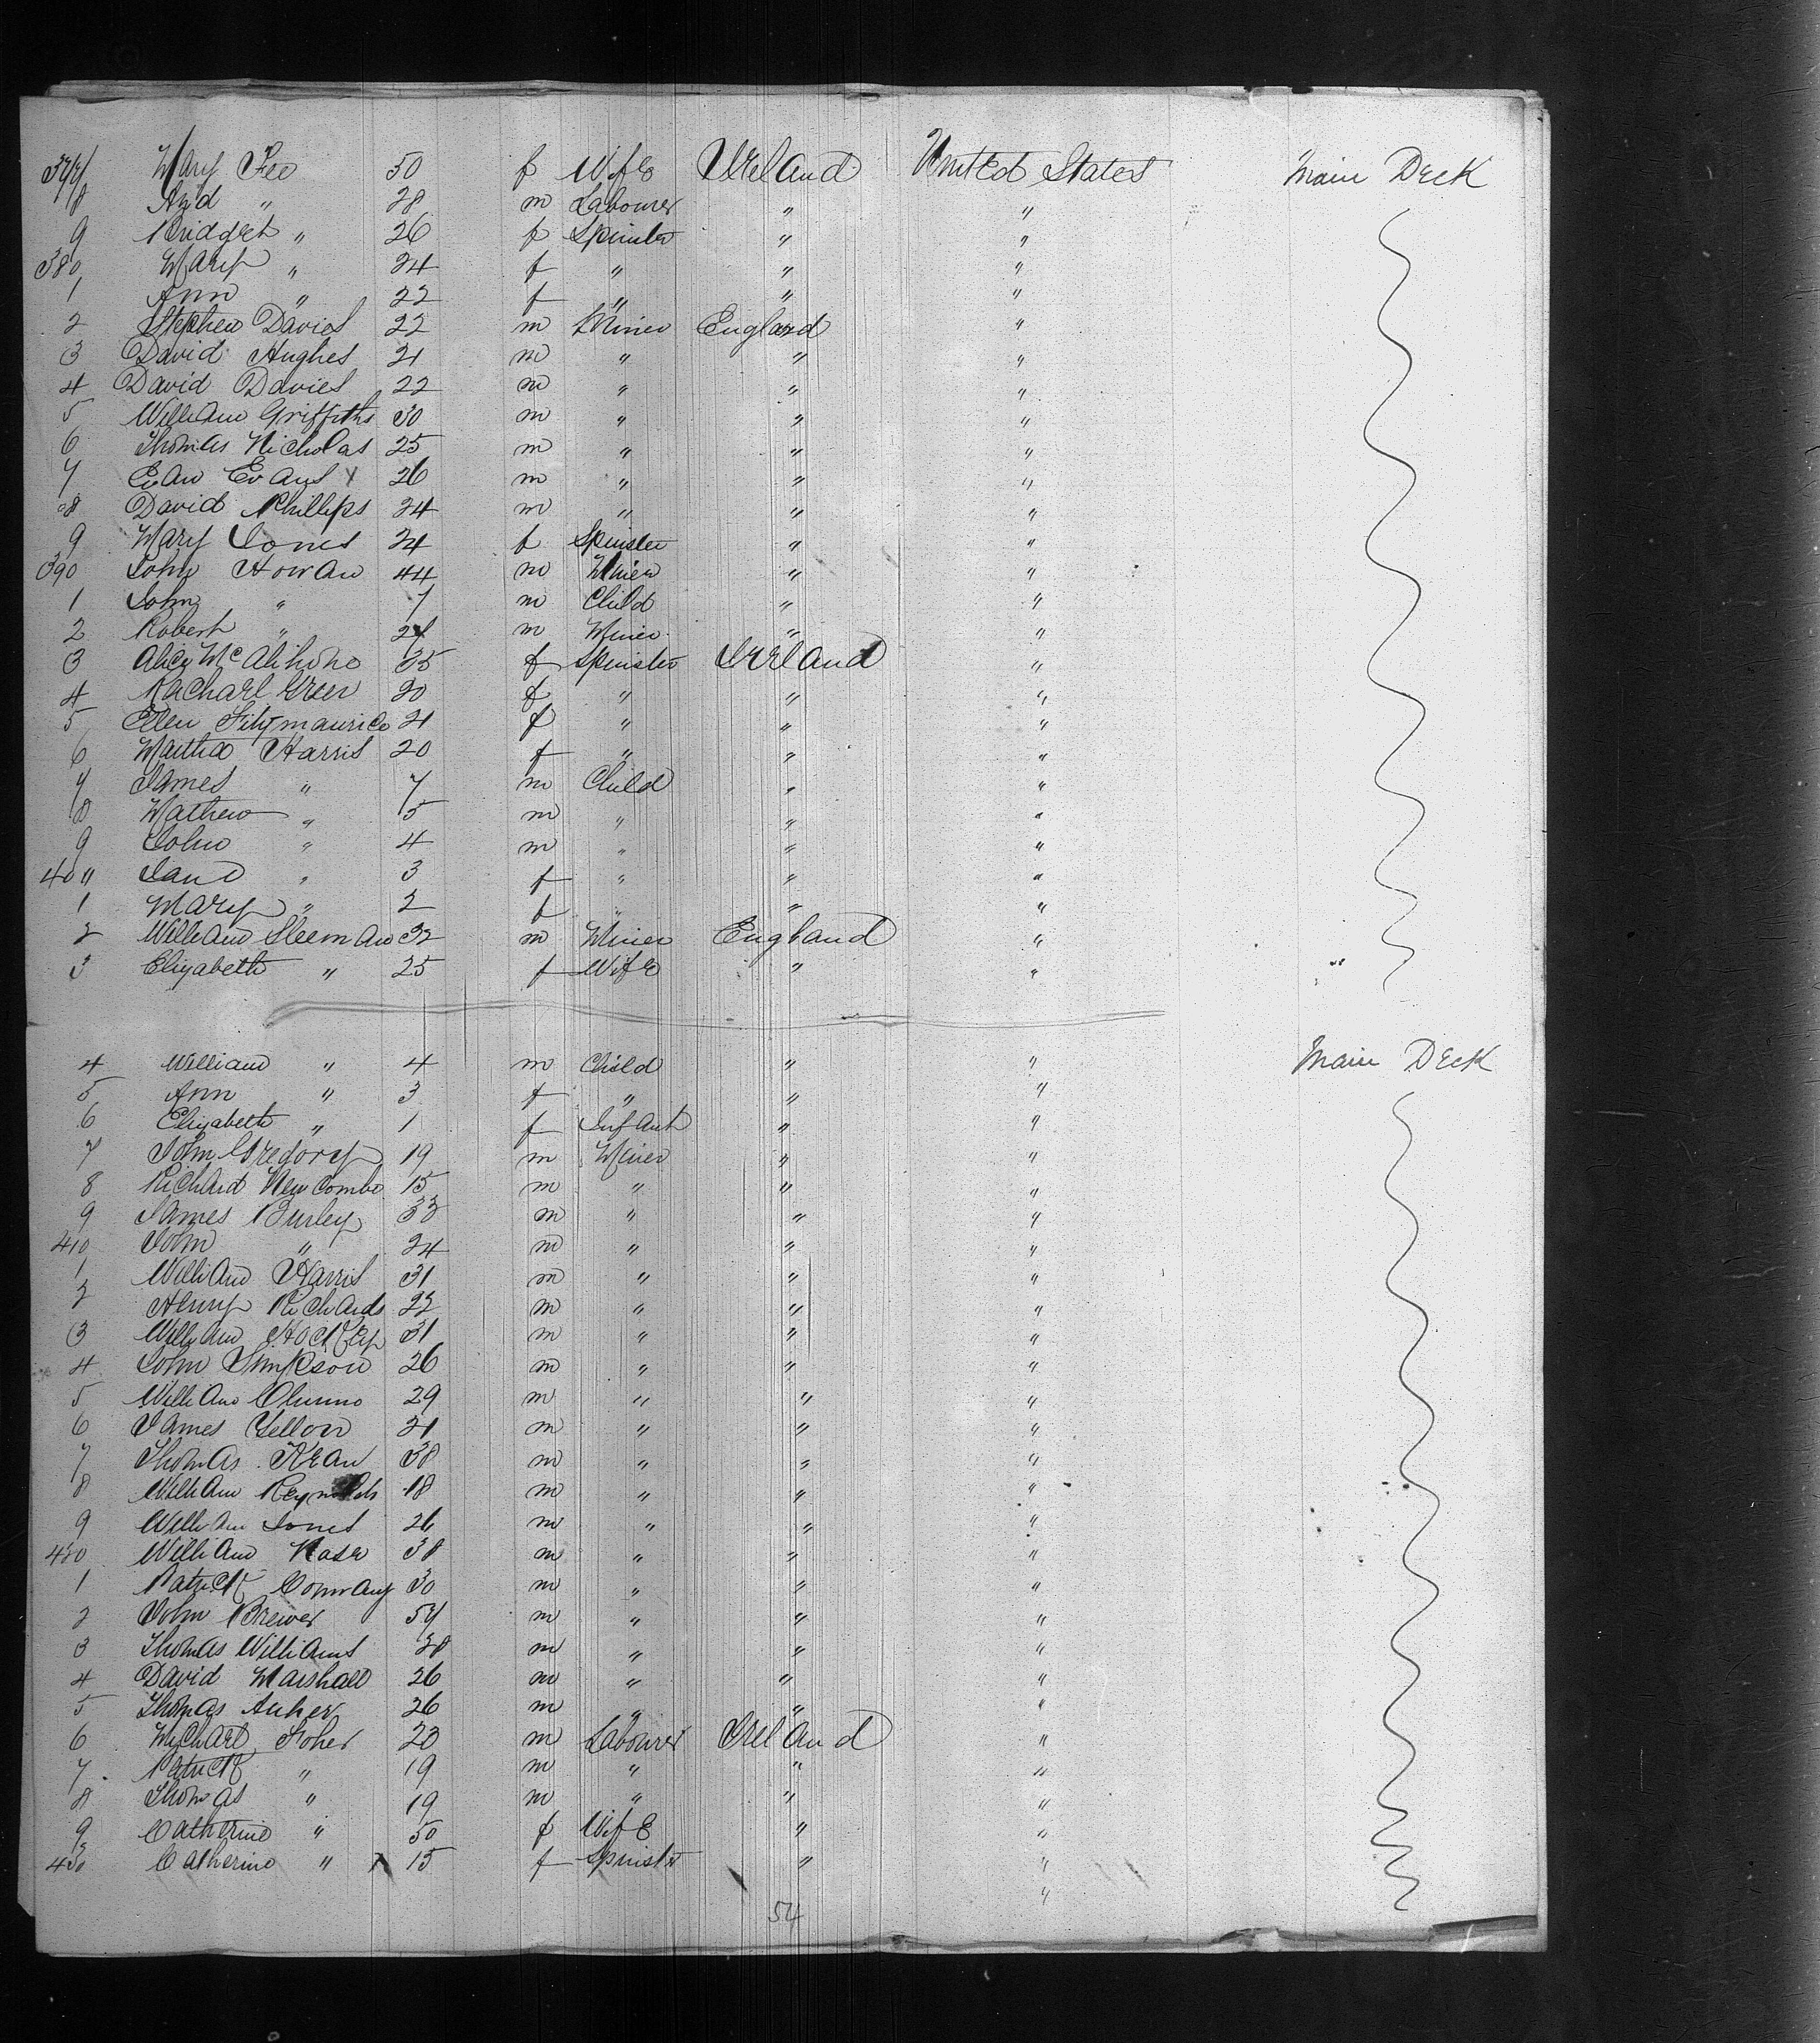 377 Mary Fee 50 f Wife Ireland United States Main Deck
8 " 28 m Labourer " "
9 Bridget " 26 f Spinster " "
380 Mary " 24 f " " "
1 Ann " 22 f " " "
2 Stephen Davies 22 m Miner England "
3 David Hughes 21 m " " "
4 David Davies 22 m " " "
5 William Griffiths 30 m " " "
6 Thomas Nicholas 25 m " " "
7 Evan Evans 26 m " " "
8 David Phillips 24 m " " "
9 Mary Jones 24 f Spinster " "
390 John Howan 44 m Miner " "
1 John " 7 m Child " "
2 Robert " m Miner " "
3 35 f Spinster Ireland "
4 Rachael Greer 20 f " " "
5 Ellen Fitzmaurice 21 f " " "
6 Martha Harris 20 f " " "
7 James " 7 m Child " "
8 Mathew " 5 m " " "
9 John " 4 m " " "
40" Jane " 3 f " " "
1 Mary " 2 f " " "
2 William Sleeman 32 m Miner England "
3 Elizabeth " 25 f Wife " "
4 William " 4 m Child " " Main Deck
5 Ann " 3 f " " "
6 Elizabeth " 1 f Infant " "
7 John Gregory 19 m Miner " "
8 Richard Newcombe 15 m " " "
9 James Burley 33 m " " "
410 John " 24 m " " "
1 William Harris 31 m " " "
2 Henry Richards 22 m " " "
3 William Hockey 31 m " " "
4 John Simpson 26 m " " "
5 William 29 m " " "
6 James Yellow 21 m " " "
7 Thomas Kean 38 m " " "
8 William Reynolds 18 m " " "
9 William Jones 26 m " " "
420 William 38 m " " "
1 Patrick Conway 30 m " " "
2 John Brewer 57 m " " "
3 Thomas Williams 28 m " " "
4 David Marshall 26 m " " "
5 Thomas 26 m " " "
6 Michael Foher 20 m Labourer Ireland "
7 Patrick " 19 m " " "
8 Thomas " 19 m " " "
9 Catherine " 50 f Wife " "
430 Catherine " 15 f Spinster " "
"
54